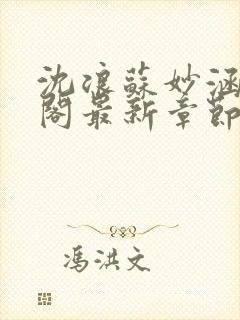 沈浪蘇妙涵
閣最新章節
馮洪文